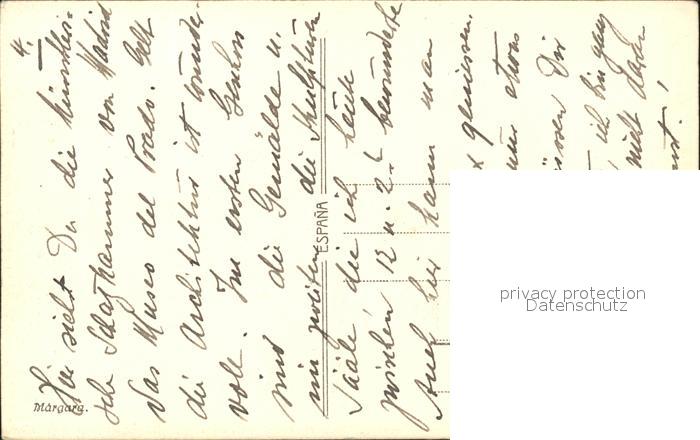 4.
Hier siehst Du die künstleri-
sche Schatzkammer von Madrid
das Museo del Prado. Selbst
die Architektur ist wunder-
voll. Im ersten
sind die Gemälde u.
im zweiten die Skulpturen
Sääle die ich heute
zwischen 12 u. 2 h bewunderte
Auch hier kann man
geniessen.
etwas
Dir
ich bin ganz
nicht daran
ESPAÑA
Margarg.
privacy protection
Datenschutz